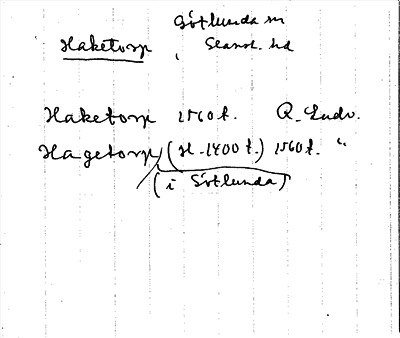 Götlunda sn
Haketorp Skarab. hd
Haketorp 1560 t. R. Ludv.
Hagetorp (H. 1400 t.) 1560 t. "
(i Götlunda)